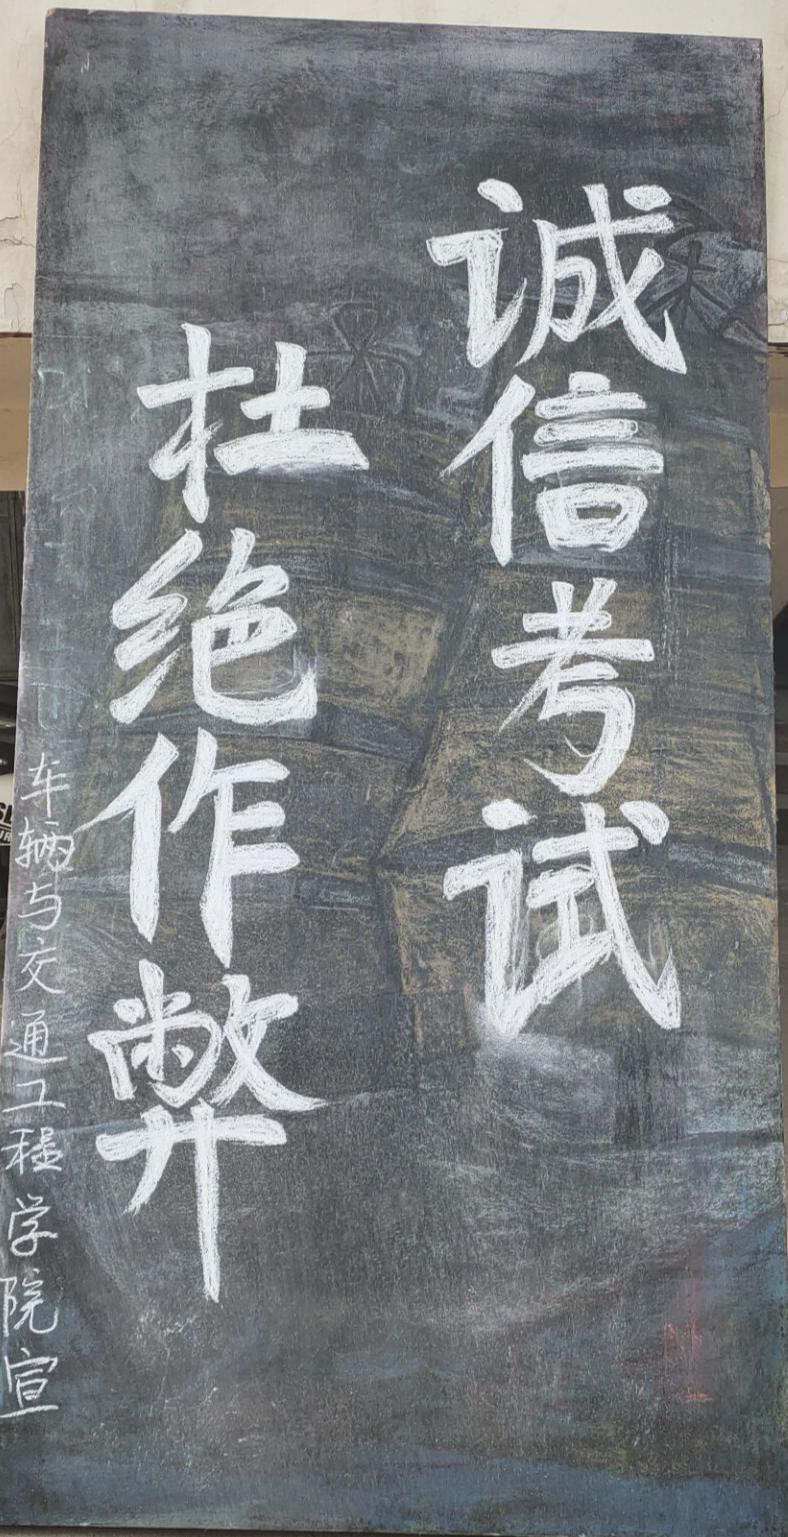 诚信考试
杜绝作弊
车辆与交通工程学院宣